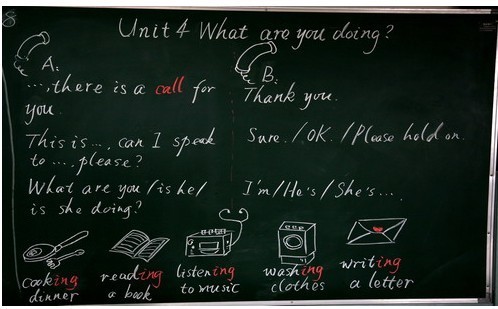 8
Unit 4 What are you doing?
A:
B:
..., there is a call for
you.
Thank you.
This is ..., can I speak
to ..., please?
Sure. / OK. / Please hold on.
What are you / is he /
is she doing?
I'm / He's / She's ....
cooking
dinner
reading
a book
listening
to music
washing
clothes
writing
a letter